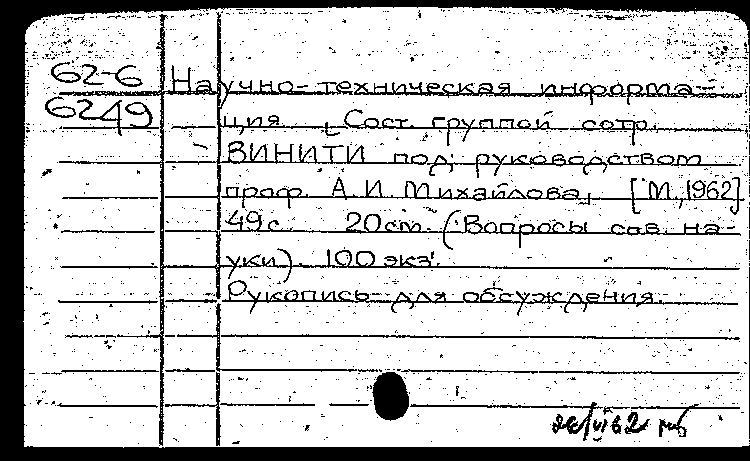 62-6
6249
Научно-техническая информа-
ция. [Сост. группой сотр.
ВИНИТИ под руководством
проф. А.И. Михайлова] [М., 1962]
49с. 20см. (Вопросы сов. на-
уки). 100 экз.
Рукопись для обсуждения.